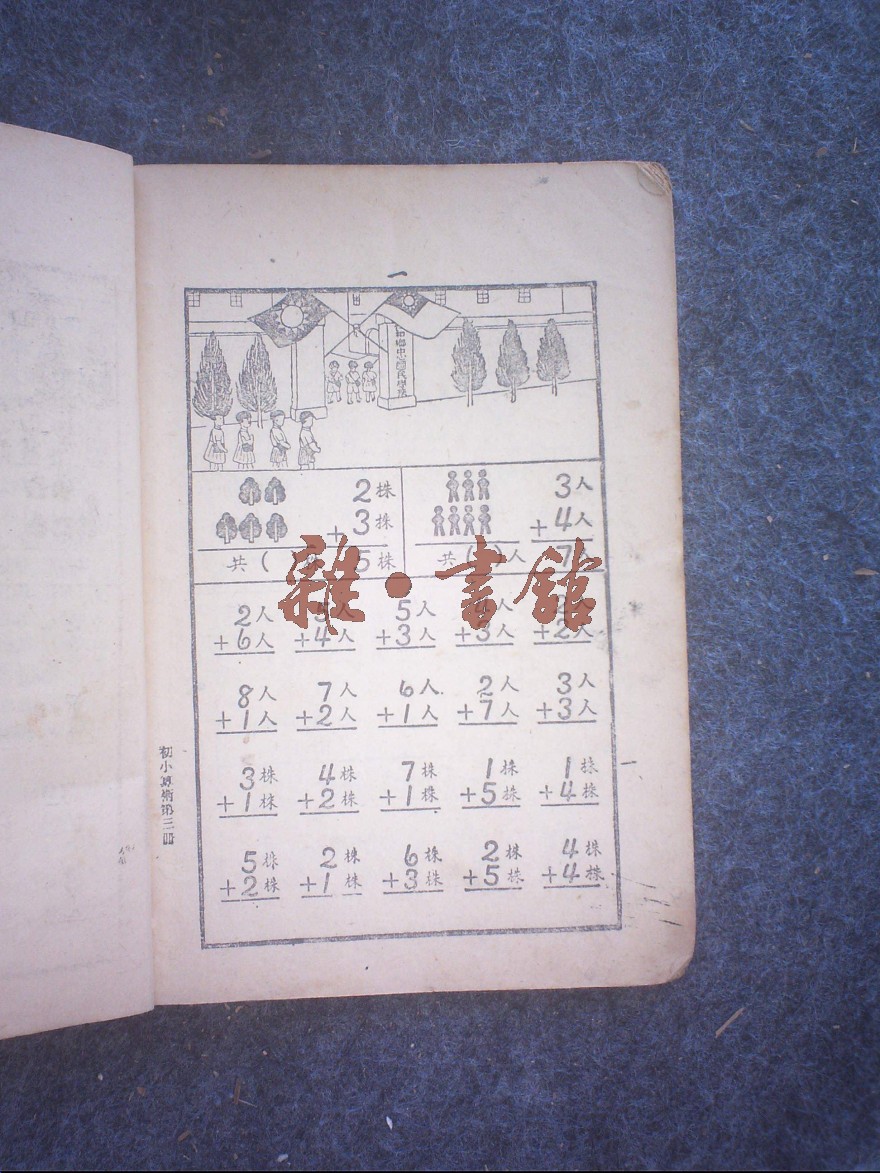 一
國民學校
2株
+3株
共(
5株
3人
+4人
共( )人
7人
雜·書館
2人
+6人
5人
+4人
5人
+3人
4人
+3人
2人
+2人
8人
+1人
7人
+2人
6人
+1人
2人
+7人
3人
+3人
3株
+1株
4株
+2株
7株
+1株
1株
+5株
1株
+4株
5株
+2株
2株
+1株
6株
+3株
2株
+5株
4株
+4株
初小算術第三冊
一